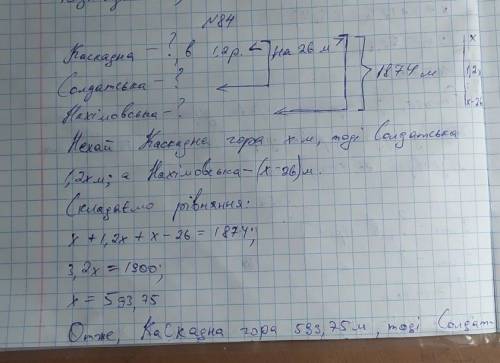 №84
Каскадна - ?, в 1,2 р. < на 26 м > x
Солдатська - ? 1874 м 1,2
Нахімовська - ? x-26
Нехай Каскадна гора x м, тоді Солдатська
1,2x м; а Нахімовська - (x-26) м.
Складаємо рівняння:
x + 1,2x + x - 26 = 1874;
3,2x = 1900;
x = 593,75
Отже, Каскадна гора 593,75 м, тоді Солдат